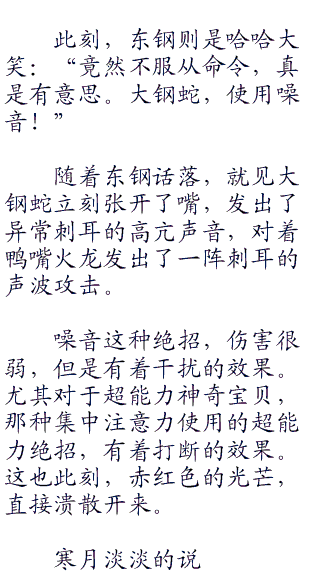 此刻，东钢则是哈哈大
笑：“竟然不服从命令，真
是有意思。大钢蛇，使用噪
音！”
随着东钢话落，就见大
钢蛇立刻张开了嘴，发出了
异常刺耳的高亢声音，对着
鸭嘴火龙发出了一阵刺耳的
声波攻击。
噪音这种绝招，伤害很
弱，但是有着干扰的效果。
尤其对于超能力神奇宝贝，
那种集中注意力使用的超能
力绝招，有着打断的效果。
这也此刻，赤红色的光芒，
直接溃散开来。
寒月淡淡的说